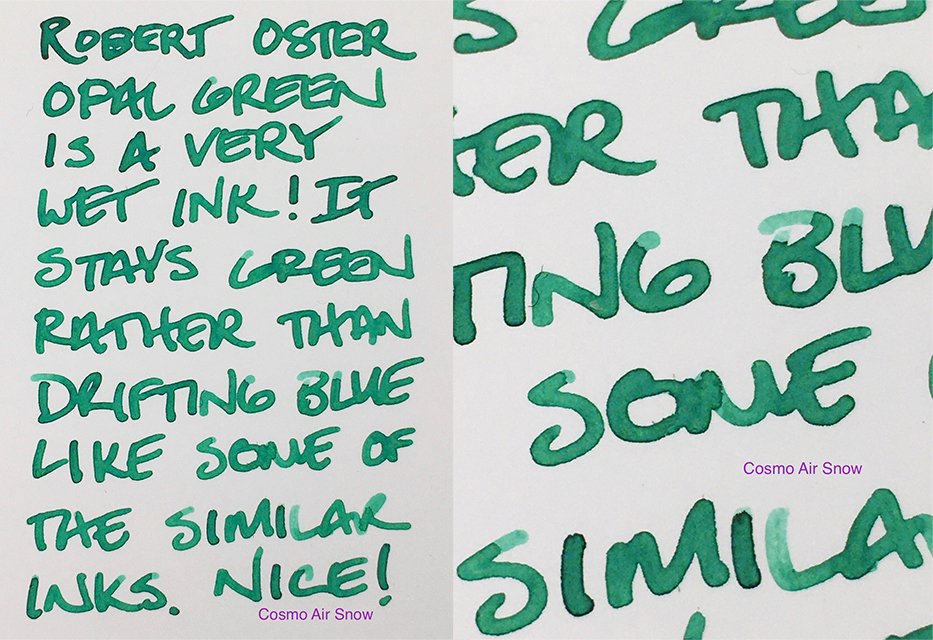 ROBERT OSTER
OPAL GREEN
IS A VERY
WET INK! IT
STAYS GREEN
RATHER THAN
DRIFTING BLUE
LIKE SOME OF
THE SIMILAR
INKS. NICE!
Cosmo Air Snow
S GREE
ER THA
TING BLU
SOME
Cosmo Air Snow
SIMILA